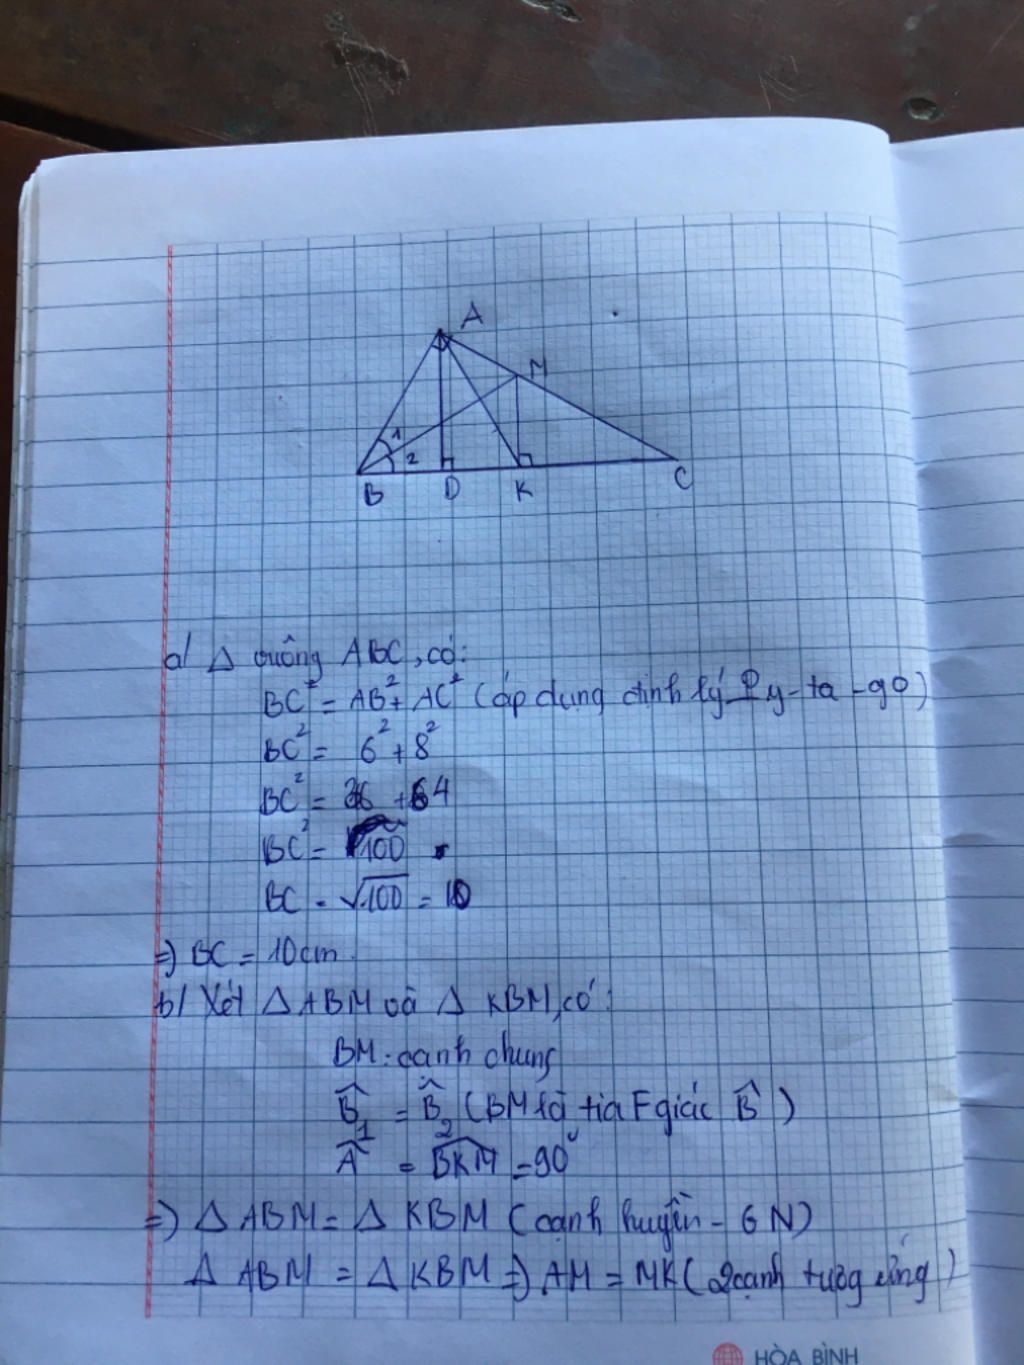 A
M
1
2
B
D
K
C
a/ Δ vuông ABC, có:
BC² = AB² + AC² (áp dụng định lý Py-ta-go)
BC² = 6² + 8²
BC² = 36 + 64
BC² = 100
BC = √100 = 10
=> BC = 10cm.
b/ Xét Δ ABM và Δ KBM, có:
BM: cạnh chung
B̂₁ = B̂₂ (BM là tia Fgiác B̂)
Â = BKM = 90°
=> Δ ABM = Δ KBM (cạnh huyền - GN)
Δ ABM = Δ KBM => AM = MK (2 cạnh tương ứng)
HÒA BÌNH